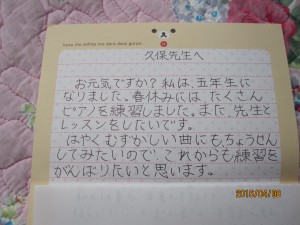 久保先生へ
お元気ですか？私は、五年生に
なりました。春休みには、たくさん
ピアノを練習しました。また、先生と
レッスンをしたいです。
はやくむずかしい曲にも、ちょうせん
してみたいので、これからも練習を
がんばりたいと思います。
2015/04/08